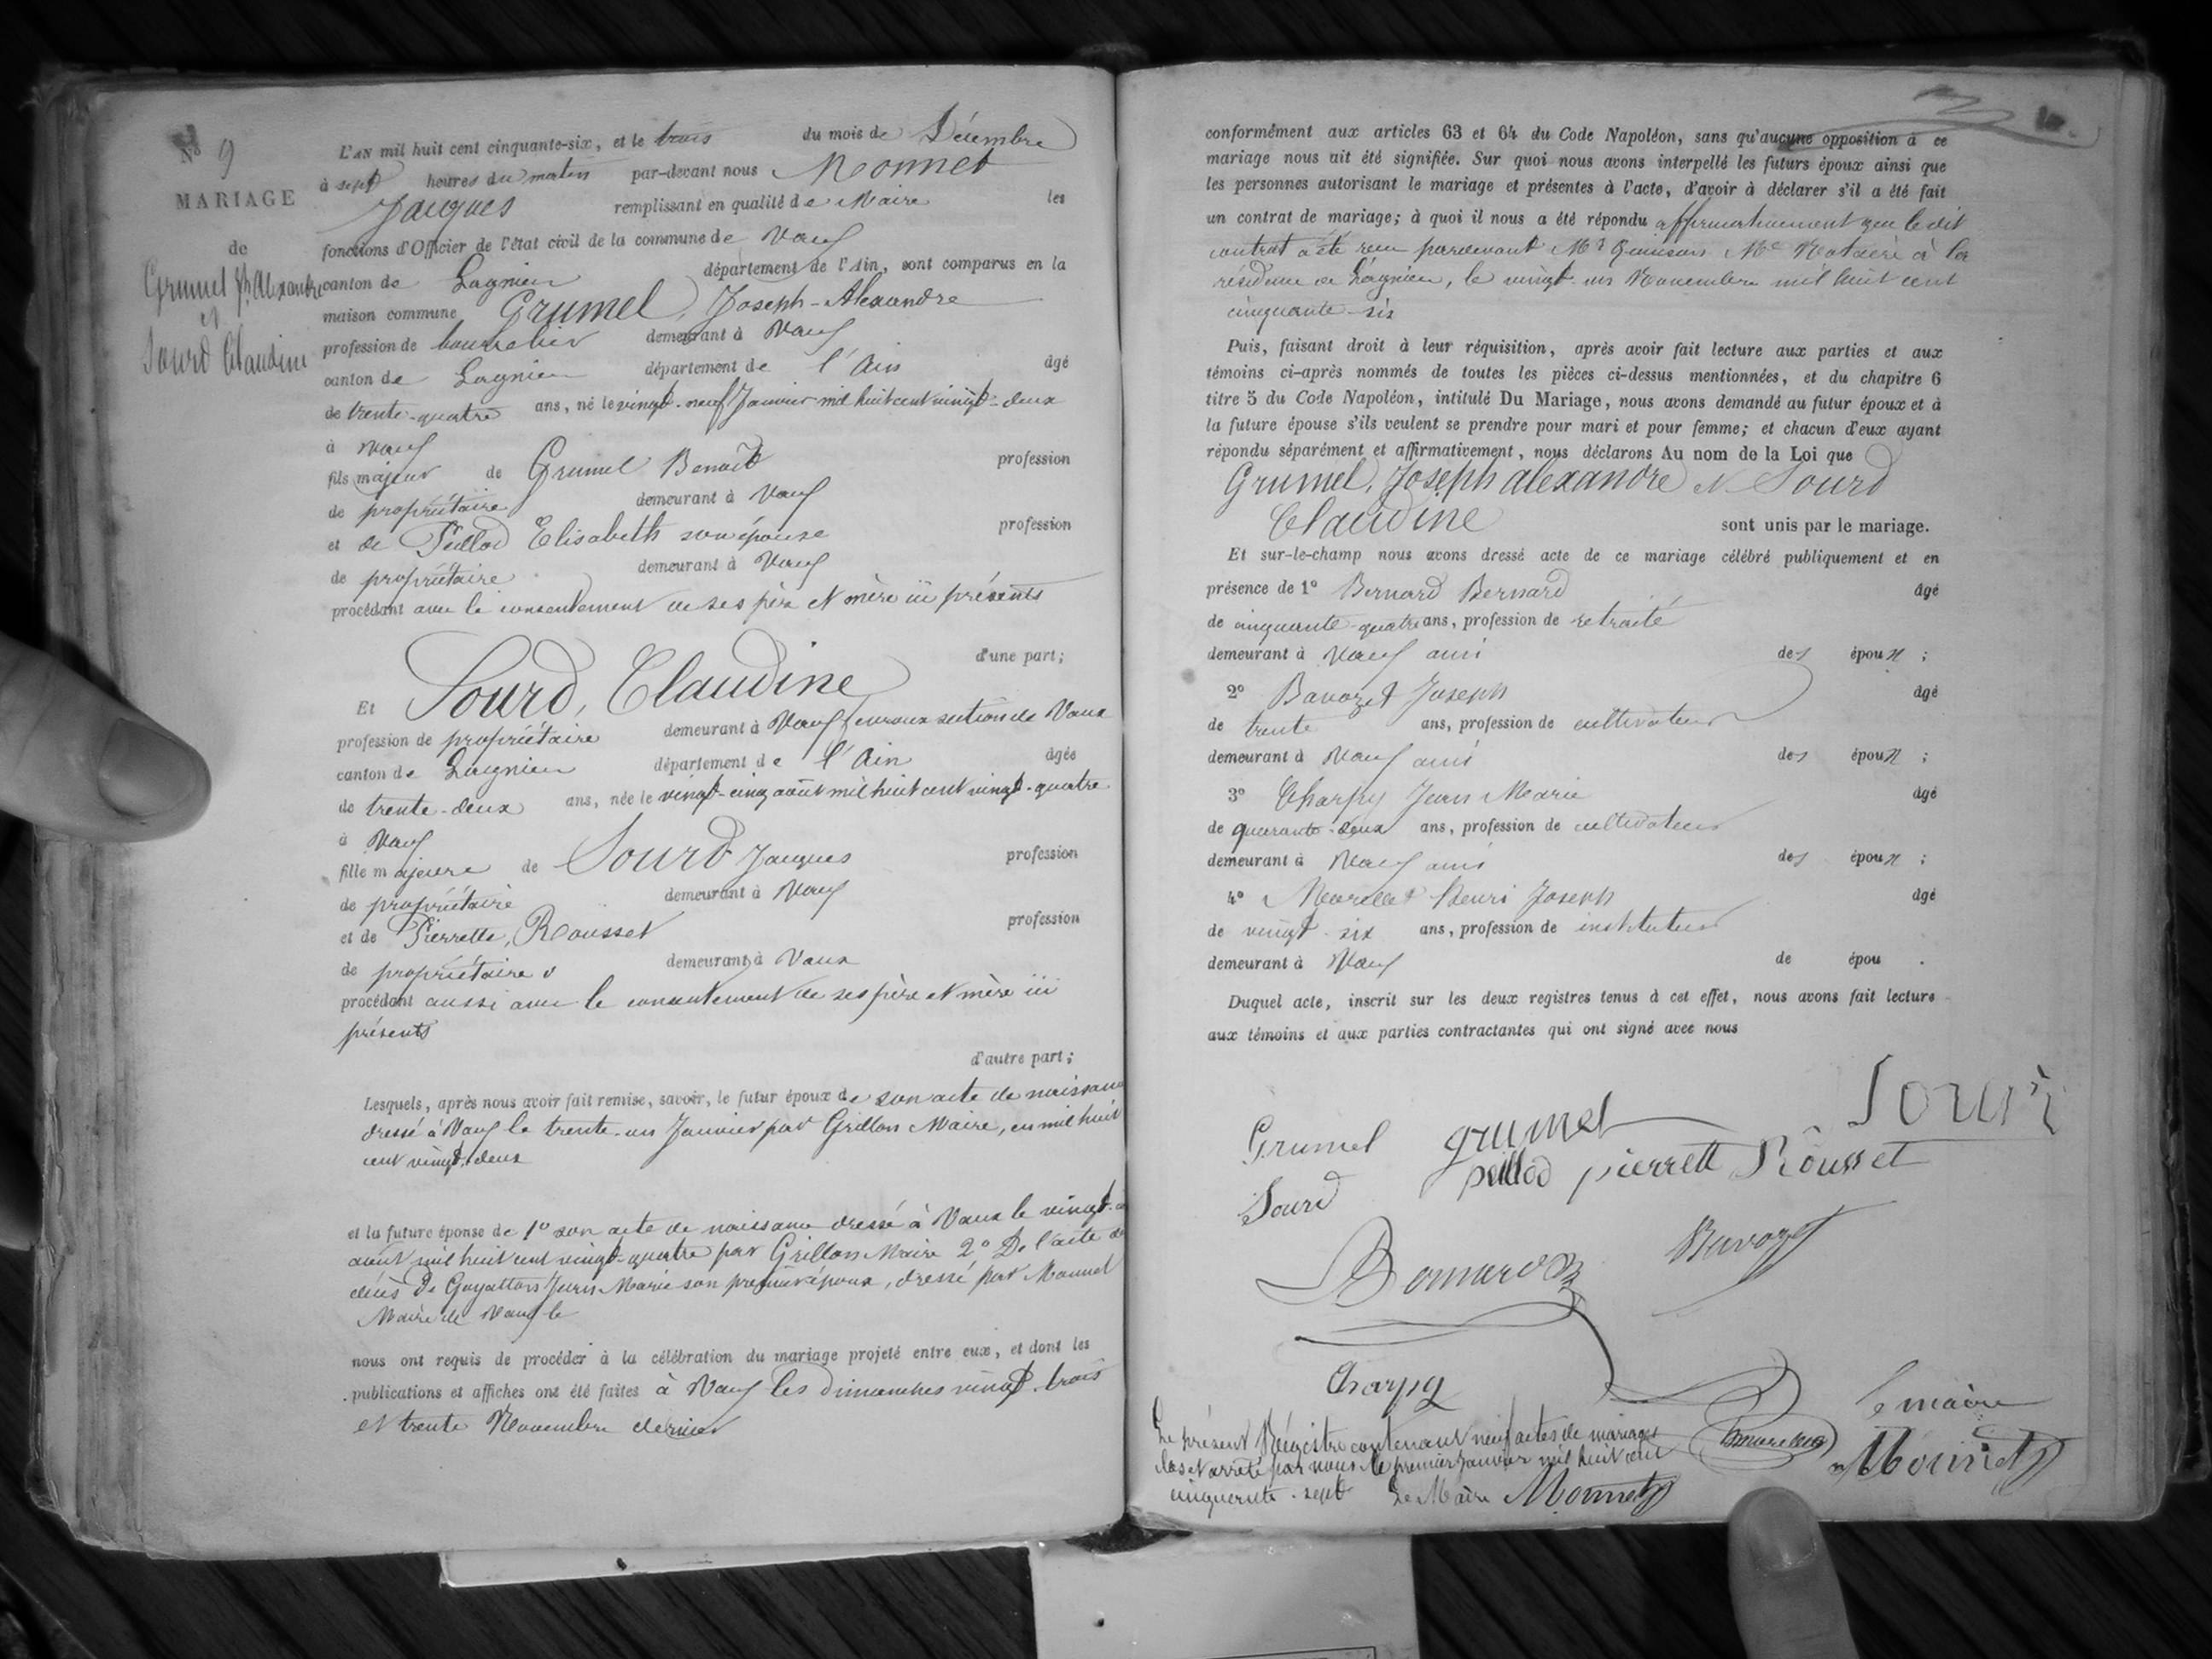 No 9
MARIAGE
de
Grumel Jh Alexandre
et
Sourd Claudine
L'AN mil huit cent cinquante-six, et le trois du mois de Décembre
à sept heures du matin par-devant nous Monnet
Jacques remplissant en qualité de Maire les
fonctions d'Officier de l'état civil de la commune de Vaux
canton de Lagnieu département de l'Ain, sont comparus en la
maison commune Grumel, Joseph-Alexandre
profession de bourrelier demeurant à Vaux
canton de Lagnieu département de l'Ain âgé
de trente-quatre ans, né le vingt-neuf Janvier mil huit cent vingt-deux
à Vaux
fils majeur de Grumel Benoît profession
de propriétaire demeurant à Vaux
et de Peillod Elisabeth son épouse profession
de propriétaire demeurant à Vaux
procédant avec le consentement de ses père et mère ici présents
d'une part;
Et Sourd, Claudine
profession de propriétaire demeurant à Vaux section de Vaux
canton de Lagnieu département de l'Ain âgée
de trente-deux ans, née le vingt-cinq août mil huit cent vingt-quatre
à Vaux
fille majeure de Sourd Jacques profession
de propriétaire demeurant à Vaux
et de Pierrette, Rousset profession
de propriétaire demeurant à Vaux
procédant aussi avec le consentement de ses père et mère ici
présents
d'autre part;
Lesquels, après nous avoir fait remise, savoir, le futur époux de son acte de naissance
dressé à Vaux le trente-un Janvier par Grillon Maire, en mil huit
cent vingt-deux
et la future épouse de 1o son acte de naissance dressé à Vaux le vingt
août mil huit cent vingt-quatre par Grillon Maire 2o De l'acte de
décès De Guyatton Jean Marie son premier époux, dressé par Monnet
Maire de Vaux le
nous ont requis de procéder à la célébration du mariage projeté entre eux, et dont les
publications et affiches ont été faites à Vaux les dimanches vingt-trois
et trente Novembre dernier
conformément aux articles 63 et 64 du Code Napoléon, sans qu'aucune opposition à ce
mariage nous ait été signifiée. Sur quoi nous avons interpellé les futurs époux ainsi que
les personnes autorisant le mariage et présentes à l'acte, d'avoir à déclarer s'il a été fait
un contrat de mariage; à quoi il nous a été répondu affirmativement que le dit
contrat a été reçu pardevant Mr Me Notaire à la
résidence de Lagnieu, le vingt-un Novembre mil huit cent
cinquante-six
Puis, faisant droit à leur réquisition, après avoir fait lecture aux parties et aux
témoins ci-après nommés de toutes les pièces ci-dessus mentionnées, et du chapitre 6
titre 5 du Code Napoléon, intitulé Du Mariage, nous avons demandé au futur époux et à
la future épouse s'ils veulent se prendre pour mari et pour femme; et chacun d'eux ayant
répondu séparément et affirmativement, nous déclarons Au nom de la Loi que
Grumel, Joseph alexandre et Sourd
Claudine sont unis par le mariage.
Et sur-le-champ nous avons dressé acte de ce mariage célébré publiquement et en
présence de 1o Bernard Bernard âgé
de cinquante-quatre ans, profession de retraité
demeurant à Vaux ami des époux;
2o Bavozet Joseph âgé
de trente ans, profession de cultivateur
demeurant à Vaux ami des époux;
3o Charpy Jean Marie âgé
de quarante-deux ans, profession de cultivateur
demeurant à Vaux ami des époux;
4o Henri Joseph âgé
de vingt-six ans, profession de instituteur
demeurant à Vaux de épou .
Duquel acte, inscrit sur les deux registres tenus à cet effet, nous avons fait lecture
aux témoins et aux parties contractantes qui ont signé avec nous
Grumel grumel Sourd
Sourd peillod pierrette Rousset
Bavozet
Charpy
Le maire
Monnet
Le présent Régistre contenant neuf actes de mariages
clos et arrêté par nous le premier Janvier mil huit cent
cinquante-sept Le Maire Monnet